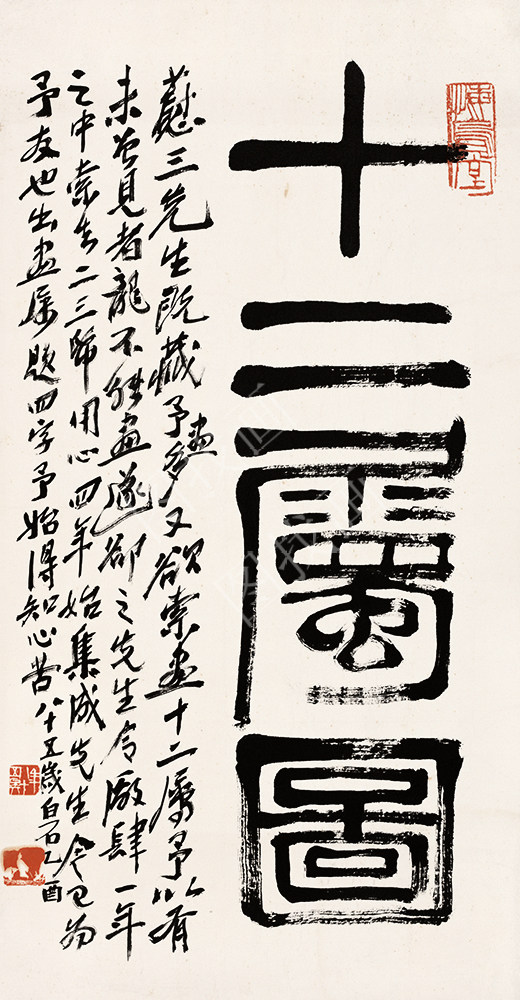 十二屬圖
三先生既藏予畫多又欲索畫十二屬予以有
未曾見者龍不能畫遂卻之先生令廠肆一年
之中索去二三幀用心四年始集成先生今已為
予友也出畫屬題四字予始得知心苦八十五歲白石乙酉
悔烏堂